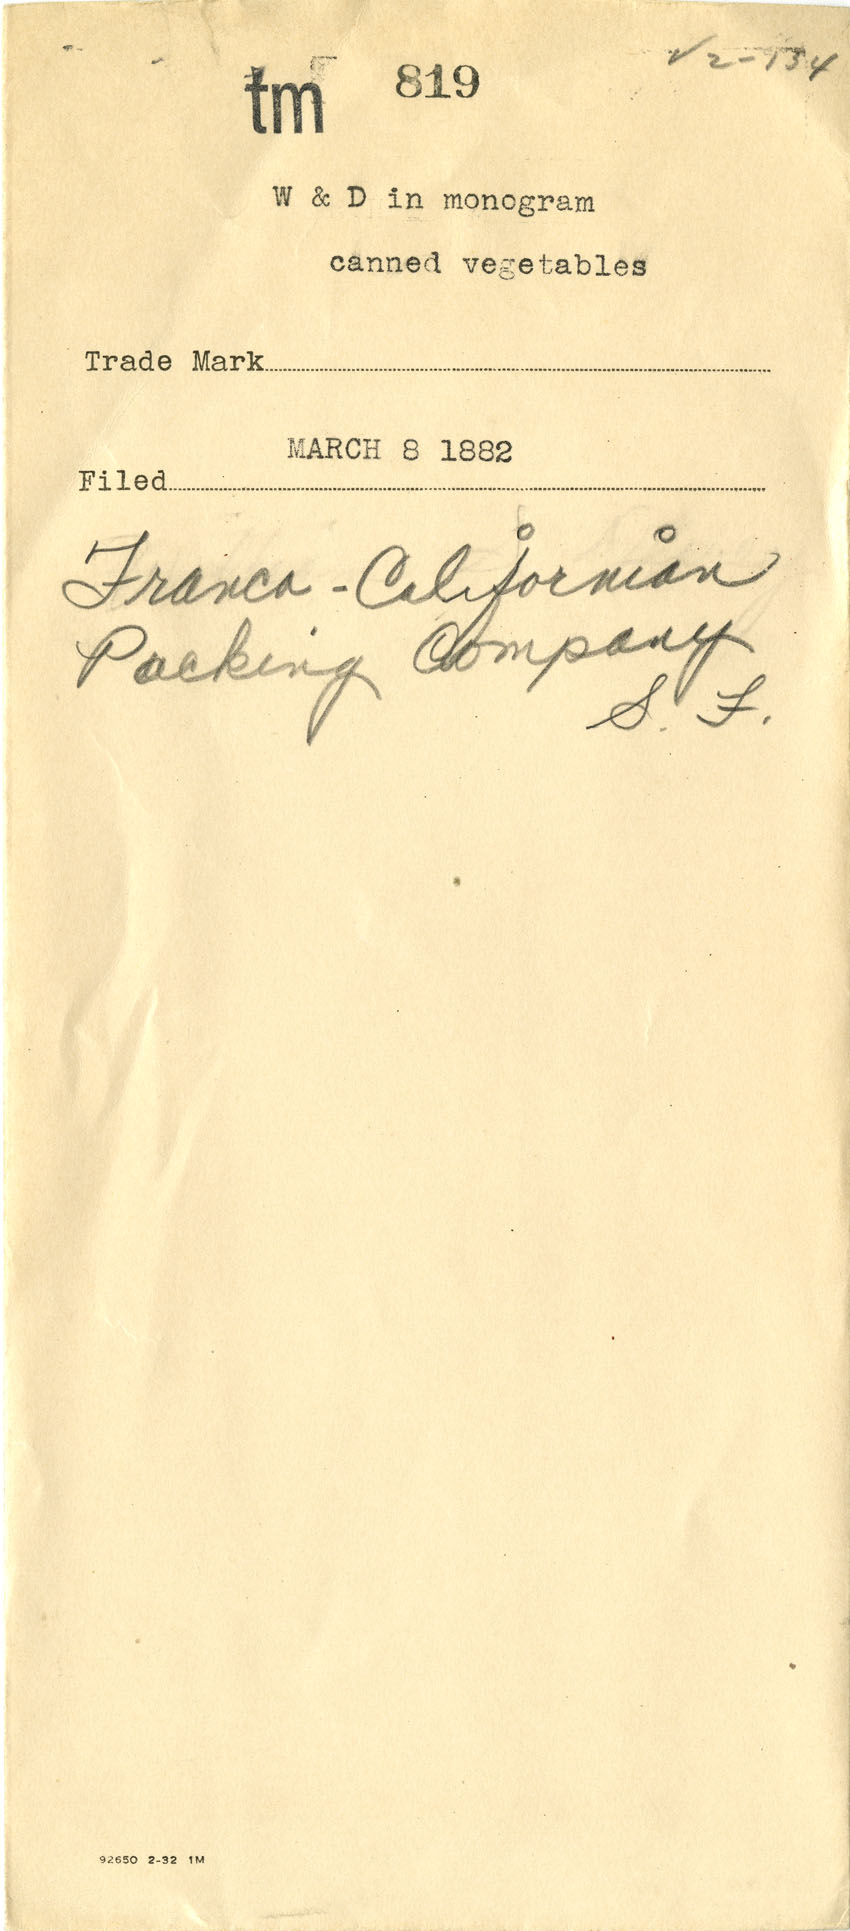 √2-134
tm 819
W & D in monogram
canned vegetables
Trade Mark
MARCH 8 1882
Filed
Franco-Californian
Packing Company
S. F.
92650 2-32 1M